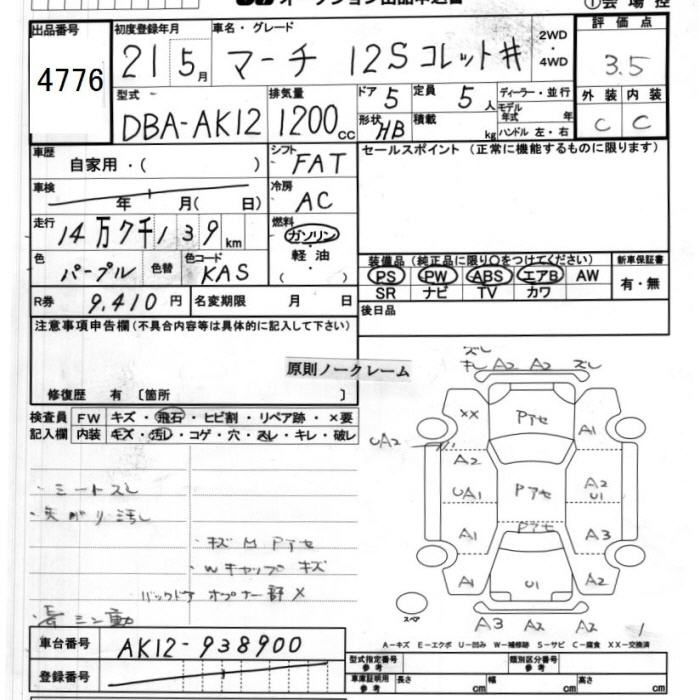 オークション出品申込書
①会場控
出品番号 初度登録年月 車名・グレード 2WD・4WD 評価点
4776 21 5月 マーチ 12S コレット♯ 3.5
型式 排気量 ドア 5 定員 5人 ディーラー・並行 外装 内装
DBA-AK12 1200cc 形状 HB 積載 kg モデル年式 年 ハンドル 左・右 C C
車歴 自家用・( ) シフト FAT セールスポイント (正常に機能するものに限ります)
車検 年 月( 日) 冷房 AC
走行 14万7千139km 燃料 ガソリン・軽油・( )
装備品(純正品に限り○をつけてください) 新車保証書
色 パープル 色替 色コード KAS PS PW ABS エアB AW 有・無
SR ナビ TV カワ
R券 9,410円 名変期限 月 日 後日品
注意事項申告欄(不具合内容等は具体的に記入して下さい)
原則ノークレーム
修復歴 有 〔箇所 〕
検査員 FW キズ・飛石・ヒビ割・リペア跡・×要
記入欄 内装 キズ・汚レ・コゲ・穴・スレ・キレ・破レ
・シートスレ
・キズ M Pアセ
・Wキャップ キズ
バックドア オプナー部 ×
ズレ
キレ A2 A2 ズレ
XX Pアセ A1
UA2
A2 A2
UA1 Pアセ U1
Pアセ
A1 A3
A1 U1 A2
スペア
A3 A2 A2 1
A-キズ E-エクボ U-凹み W-補修跡 S-サビ C-腐食 XX-交換済
車台番号 AK12-938900
型式指定番号 参考 類別区分番号 参考
登録番号
車庫証明用 参考 長さ cm 幅 cm 高さ cm